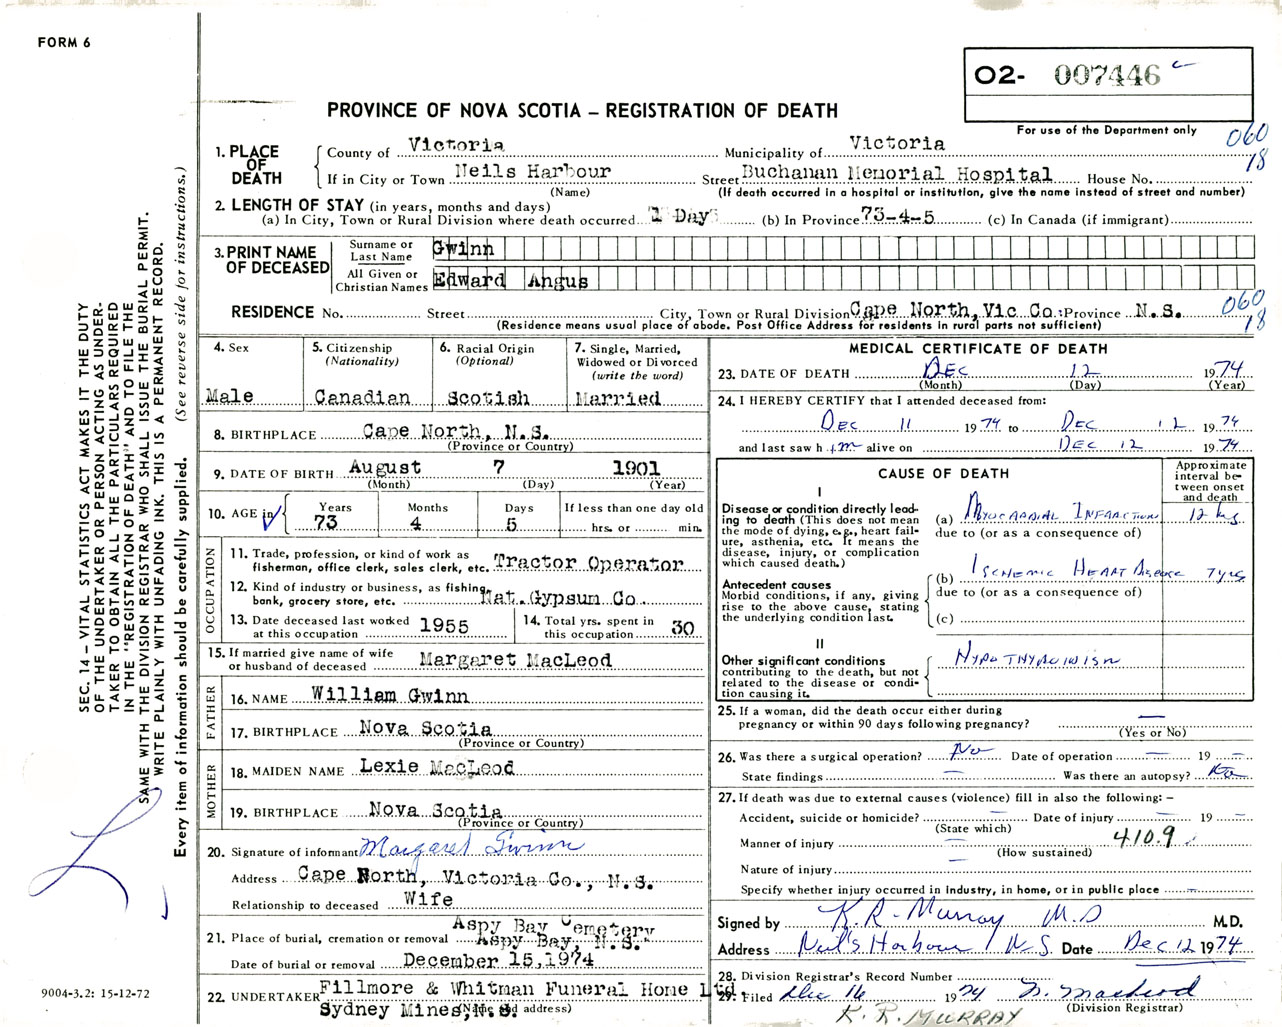 FORM 6
O2- 007446
For use of the Department only
060
18
PROVINCE OF NOVA SCOTIA – REGISTRATION OF DEATH
1. PLACE OF DEATH
County of Victoria Municipality of Victoria
If in City or Town Neils Harbour Street Buchanan Memorial Hospital House No.
(Name) (If death occurred in a hospital or institution, give the name instead of street and number)
2. LENGTH OF STAY (in years, months and days)
(a) In City, Town or Rural Division where death occurred 1 Day (b) In Province 73-4-5 (c) In Canada (if immigrant)
3. PRINT NAME OF DECEASED
Surname or Last Name Gwinn
All Given or Christian Names Edward Angus
RESIDENCE No. Street City, Town or Rural Division Cape North, Vic Co. Province N.S.
(Residence means usual place of abode. Post Office Address for residents in rural parts not sufficient)
060
18
4. Sex Male
5. Citizenship (Nationality) Canadian
6. Racial Origin (Optional) Scotish
7. Single, Married, Widowed or Divorced (write the word) Married
8. BIRTHPLACE Cape North, N.S.
(Province or Country)
9. DATE OF BIRTH August 7 1901
(Month) (Day) (Year)
10. AGE in Years 73 Months 4 Days 5 If less than one day old hrs. or min.
OCCUPATION
11. Trade, profession, or kind of work as fisherman, office clerk, sales clerk, etc. Tractor Operator
12. Kind of industry or business, as fishing, bank, grocery store, etc. Nat. Gypsum Co.
13. Date deceased last worked at this occupation 1955
14. Total yrs. spent in this occupation 30
15. If married give name of wife or husband of deceased Margaret MacLeod
FATHER
16. NAME William Gwinn
17. BIRTHPLACE Nova Scotia
(Province or Country)
MOTHER
18. MAIDEN NAME Lexie MacLeod
19. BIRTHPLACE Nova Scotia
(Province or Country)
20. Signature of informant Margaret Gwinn
Address Cape North, Victoria Co., N.S.
Relationship to deceased Wife
21. Place of burial, cremation or removal Aspy Bay Cemetery Aspy Bay, N.S.
Date of burial or removal December 15, 1974
22. UNDERTAKER Fillmore & Whitman Funeral Home Ltd.
Sydney Mines, N.S.
(Name and address)
MEDICAL CERTIFICATE OF DEATH
23. DATE OF DEATH DEC 12 1974
(Month) (Day) (Year)
24. I HEREBY CERTIFY that I attended deceased from:
DEC 11 1974 to DEC 12 1974
and last saw him alive on DEC 12 1974
CAUSE OF DEATH
Approximate interval between onset and death
I
Disease or condition directly leading to death (This does not mean the mode of dying, e.g., heart failure, asthenia, etc. It means the disease, injury, or complication which caused death.)
(a) MYOCARDIAL INFARCTION 12 hrs
due to (or as a consequence of)
Antecedent causes
Morbid conditions, if any, giving rise to the above cause, stating the underlying condition last.
(b) ISCHEMIC HEART DISEASE 7 yrs
due to (or as a consequence of)
(c)
II
Other significant conditions contributing to the death, but not related to the disease or condition causing it.
HYPOTHYROIDISM
25. If a woman, did the death occur either during pregnancy or within 90 days following pregnancy? —
(Yes or No)
26. Was there a surgical operation? No Date of operation — 19 —
State findings — Was there an autopsy? No
27. If death was due to external causes (violence) fill in also the following: –
Accident, suicide or homicide? — Date of injury — 19 —
(State which)
Manner of injury — 410.9
(How sustained)
Nature of injury —
Specify whether injury occurred in industry, in home, or in public place —
Signed by K. R. Murray M.D M.D.
Address Neil's Harbour N.S. Date Dec 12 1974
28. Division Registrar's Record Number
29. Filed Dec 16 1974 N. MacLeod
(Division Registrar)
K. R. MURRAY
SEC. 14 – VITAL STATISTICS ACT MAKES IT THE DUTY
OF THE UNDERTAKER OR PERSON ACTING AS UNDER-
TAKER TO OBTAIN ALL THE PARTICULARS REQUIRED
IN THE "REGISTRATION OF DEATH" AND TO FILE THE
SAME WITH THE DIVISION REGISTRAR WHO SHALL ISSUE THE BURIAL PERMIT.
WRITE PLAINLY WITH UNFADING INK. THIS IS A PERMANENT RECORD.
Every item of information should be carefully supplied. (See reverse side for instructions.)
9004-3.2: 15-12-72